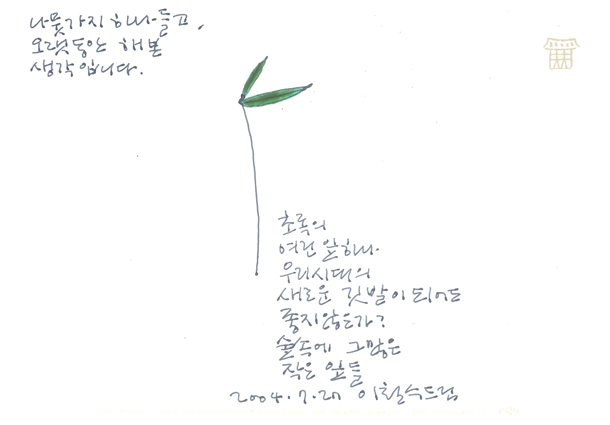 나뭇가지 하나 들고,
오랫동안 해본
생각입니다.
초록의
여린 잎하나.
우리시대의
새로운 깃발이 되어도
좋지않은가?
숲속에 그많은
작은 잎들
2004.7.27 이철수드림